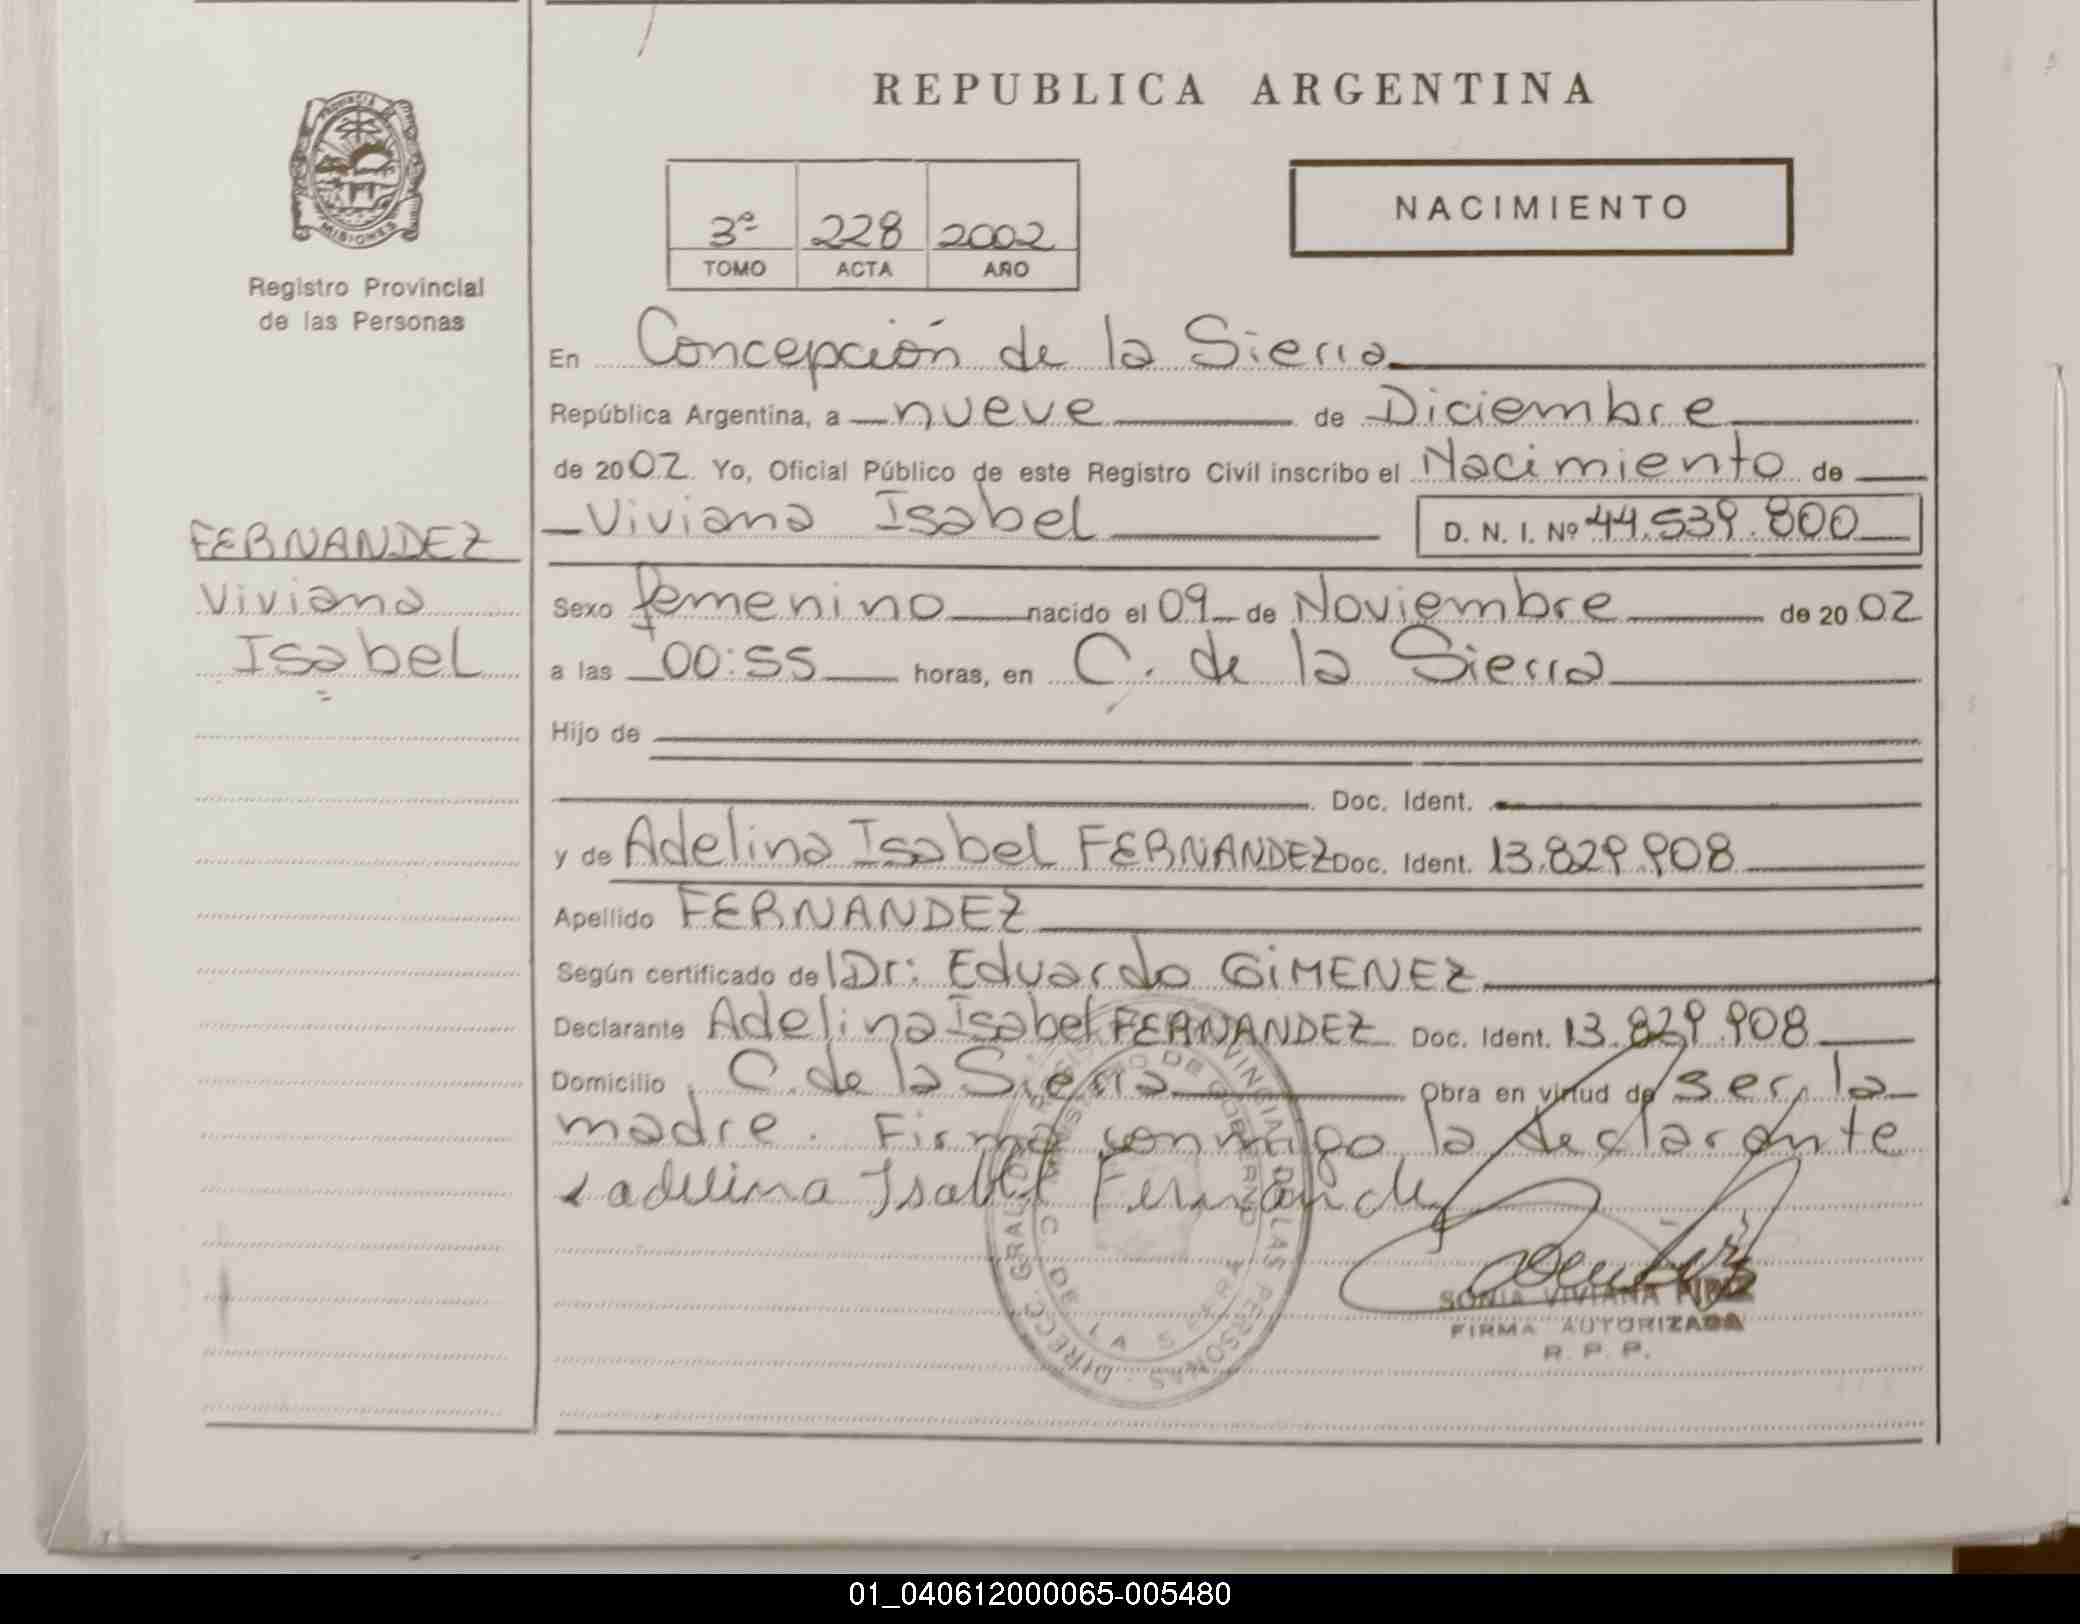 REPUBLICA ARGENTINA
PROVINCIA DE
MISIONES
Registro Provincial
de las Personas
3º 228 2002
TOMO ACTA AÑO
NACIMIENTO
En Concepción de la Sierra
República Argentina, a nueve de Diciembre
de 2002. Yo, Oficial Público de este Registro Civil inscribo el Nacimiento de
Viviana Isabel D. N. I. Nº 44.539.800
FERNANDEZ
Viviana
Isabel
Sexo femenino nacido el 09 de Noviembre de 2002
a las 00:55 horas, en C. de la Sierra
Hijo de
Doc. Ident.
y de Adelina Isabel FERNANDEZ Doc. Ident. 13.829.908
Apellido FERNANDEZ
Según certificado de Dr: Eduardo GIMENEZ
Declarante Adelina Isabel FERNANDEZ Doc. Ident. 13.829.908
Domicilio C. de la Sierra Obra en virtud de ser la
madre. Firma conmigo la declarante
adelina Isabel Fernánde
DIRECC. GRAL. DEL REG. PROVINCIAL DE LAS PERSONAS
MINISTERIO DE GOBIERNO
C. DE LA SIERRA
SONIA VIVIANA
FIRMA AUTORIZADA
R. P. P.
01_040612000065-005480